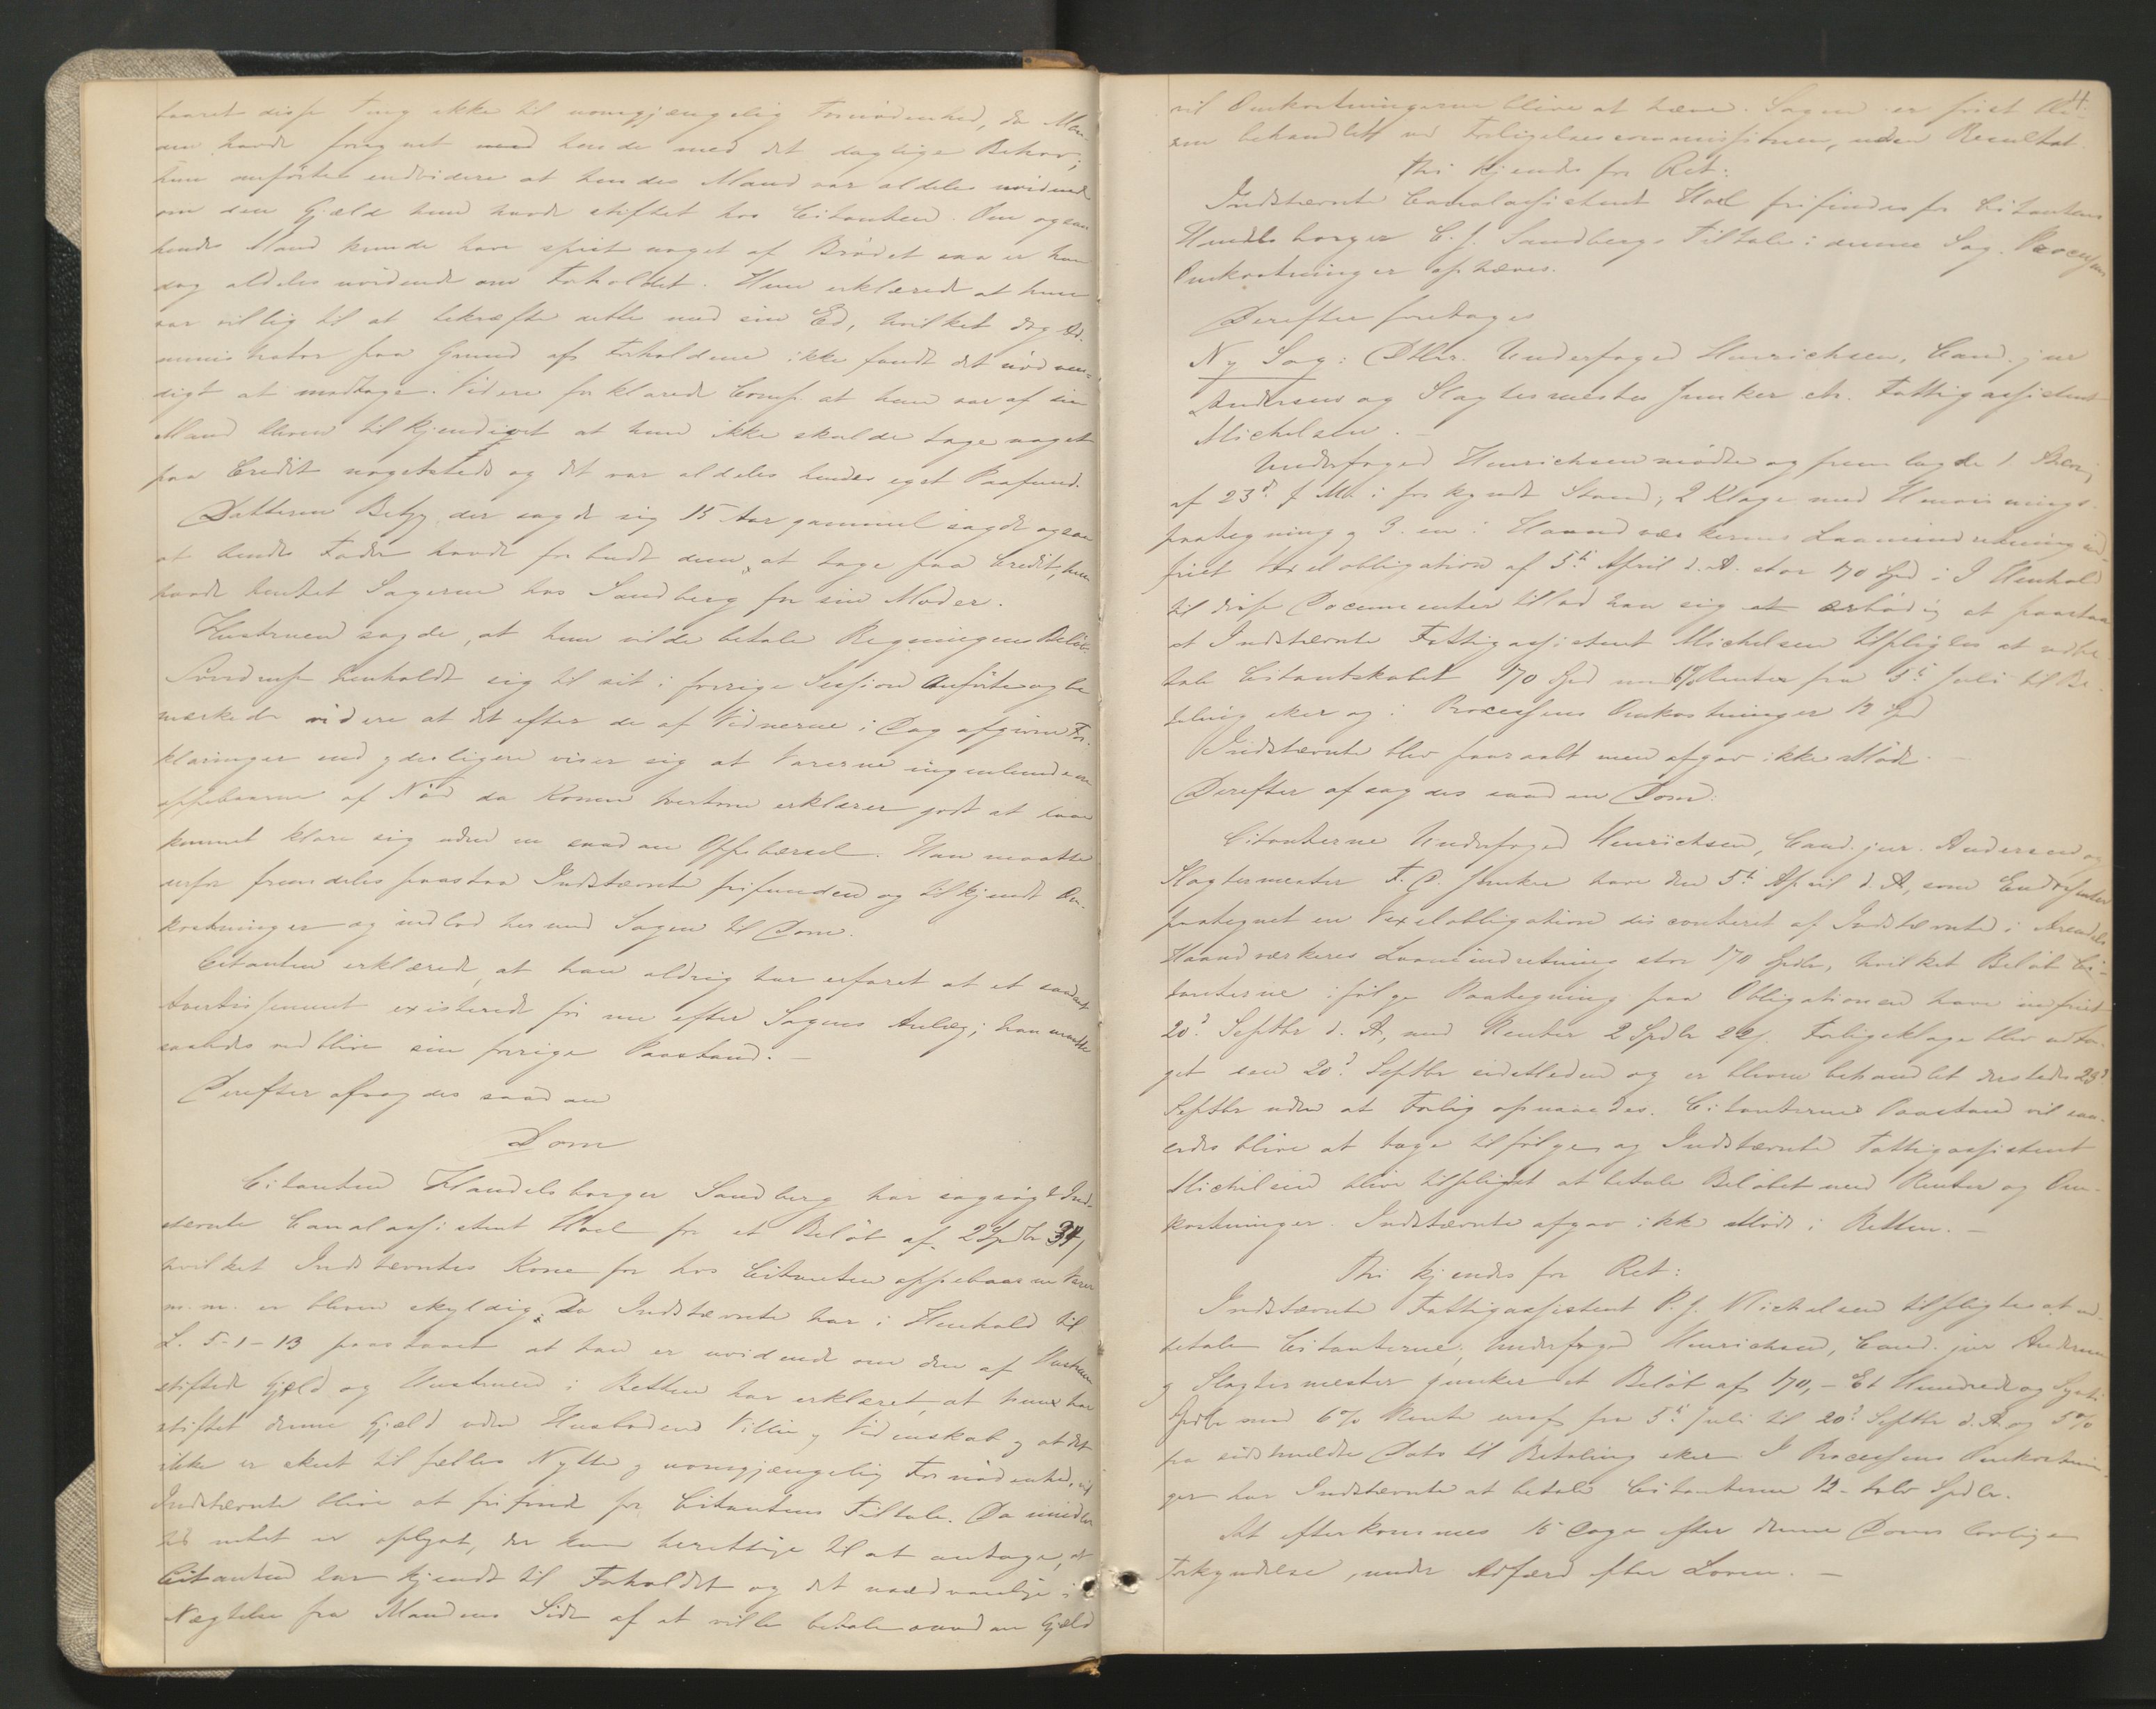 baaret disse Ting ikke til uomgjængelig Fornødenhed, da Man-
den havde forsynet hende med det daglige Behov;
hun anførte endvidere at hendes Mand var aldeles uvidende
om den Gjæld hun havde stiftet hos Citanten. Om ogsaa
hendes Mand kunde have spist noget af Brødet saa er han
dog aldeles uvidende om Forholdet. Hun erklærede at hun
var villig til at bekræfte dette med sin Ed, hvilket dog Ad-
ministrator paa Grund af Forholdene ikke fandt det nødven-
digt at modtage. Videre forklarede Comp. at hun var af sin
Mand bleven tilkjendegivet at hun ikke skulde tage noget
paa Credit nogetsteds og det var aldeles hendes eget Paafund.
Datteren Betzy der sagde sig 15 Aar gammel sagde ogsaa
at hendes Fader havde forbudt dem at tage paa Credit, hun
havde hentet Sagerne hos Sandberg for sin Moder.
Hustruen sagde, at hun vilde betale Regningens Beløb.
henholdt sig til sit i forrige Session Anførte og be
mærkede videre at det efter de af Vidnerne i Dag afgivne For-
klaringer end yderligere viser sig at Varerne ingenlunde er
oppebaaren af Nød da Konen tvertom erklærer godt at have
kunnet klare sig uden en saadan Oppebærsel. Han maatte
derfor fremdeles paastaa Indstævnte frifunden og tilkjendt Om-
kostninger og indlod hermed Sagen til Dom.
Citanten erklærede, at han aldrig har erfaret at et saadant
Avertissement existerede før nu efter Sagens Anlæg; han maatte
saaledes vedblive sin forrige Paastand. —
Derefter afsagdes saadan
Dom
Citanten Handelsborger Sandberg har sagsøgt Ind-
stævnte Canalassistent Hoel for et Beløb af 2 Spdlr 34,
hvilket Indstævntes Kone for hos Citanten oppebaarne Varer
m. m. er bleven skyldig. Da Indstævnte har i Henhold til
L. 5-1-13 paastaaet at han er uvidende om den af Hustruen
stiftede Gjæld og Hustruen i Retten har erklæret, at hun har
stiftet denne Gjæld uden Husbondens Villie og Videnskab og at det
ikke er skeet til fælles Nytte og uomgjængelig Fornødenhed, vil
Indstævnte blive at frifinde for Citantens Tiltale. Da imidler
tid intet er oplyst, der kan berettige til at antage, at
Citanten har kjendt til Forholdet og det usædvanlige i
Nægtelse fra Mandens Side af at ville betale saadan Gjæld
4.
vil Omkostningerne blive at hæve. Sagen er først
behandlet ved Forligelsescommissionen, uden Resultat.
Thi kjendes for Ret:
Indstævnte Canalassistent Hoel frifindes for Citantens
Handelsborger C. J. Sandbergs Tiltale i denne Sag. Processens
Omkostninger ophæves.
Derefter foretoges
Ny Sag: Dhrr. Underfoged Henrichsen, Cand. jur
Andersen og Slagtermester Junker ctr. Fattigassistent
Michelsen. —
Underfoged Henrichsen mødte og fremlagde 1. Stævn.
af 23d. f. M. i forkyndt Stand, 2 Klage med Henvisnings-
paategning og 3. en i Haandværkernes Laaneindretning ind-
friet Vexelobligation af 5te April d. A. stor 170 Spd i Henhold
til disse Documenter tillod han sig ærbødig at paastaa
at Indstævnte Fattigassistent Michelsen tilpligtes at udbe-
tale Citantskabet 170 Spd med 6% Renter fra 5te Juli til Be-
taling sker og i Processens Omkostninger 12 Spd
Indstævnte blev paaraabt men afgav ikke Møde. —
Derefter afsagdes saadan Dom:
Citanterne Underfoged Henrichsen, Cand. jur. Andersen og
Slagtermester F. D. Junker have den 5te April d. A., som Endossenter
paategnet en Vexelobligation disconteret af Indstævnte i Arendals
Haandværkeres Laaneindretning stor 170 Spdlr, hvilket Beløb Ci-
tanterne ifølge Paategning paa Obligationen have indfriet
20d. Septbr d. A., med Renter 2 Spdlr 22 s. Forligsklage blev udta-
get den 20d. Septbr sidstleden og er bleven behandlet dersteds 23d
Septbr uden at Forlig opnaaedes. Citanternes Paastand vil saa-
ledes blive at tage tilfølge og Indstævnte Fattigassistent
Michelsen blive tilpligtet at betale Beløbet med Renter og Om-
kostninger. Indstævnte afgav ikke Møde i Retten. —
Thi kjendes for Ret:
Indstævnte Fattigassistent P. J. Michelsen tilpligtes at ud-
betale Citanterne, Underfoged Henrichsen, Cand. jur Andersen
og Slagtermester Junker et Beløb af 170, — Et Hundrede og Sytti
Spdlr med 6% Rente deraf fra 5te Juli til 20d Septbr d. A. og 5%
fra sidstmeldte Dato til Betaling sker. I Processens Omkostnin-
ger har Indstævnte at betale Citanterne 12 — tolv Spdlr.
At efterkommes 15 Dage efter denne Doms lovlige
Forkyndelse, under Adfærd efter Loven. —